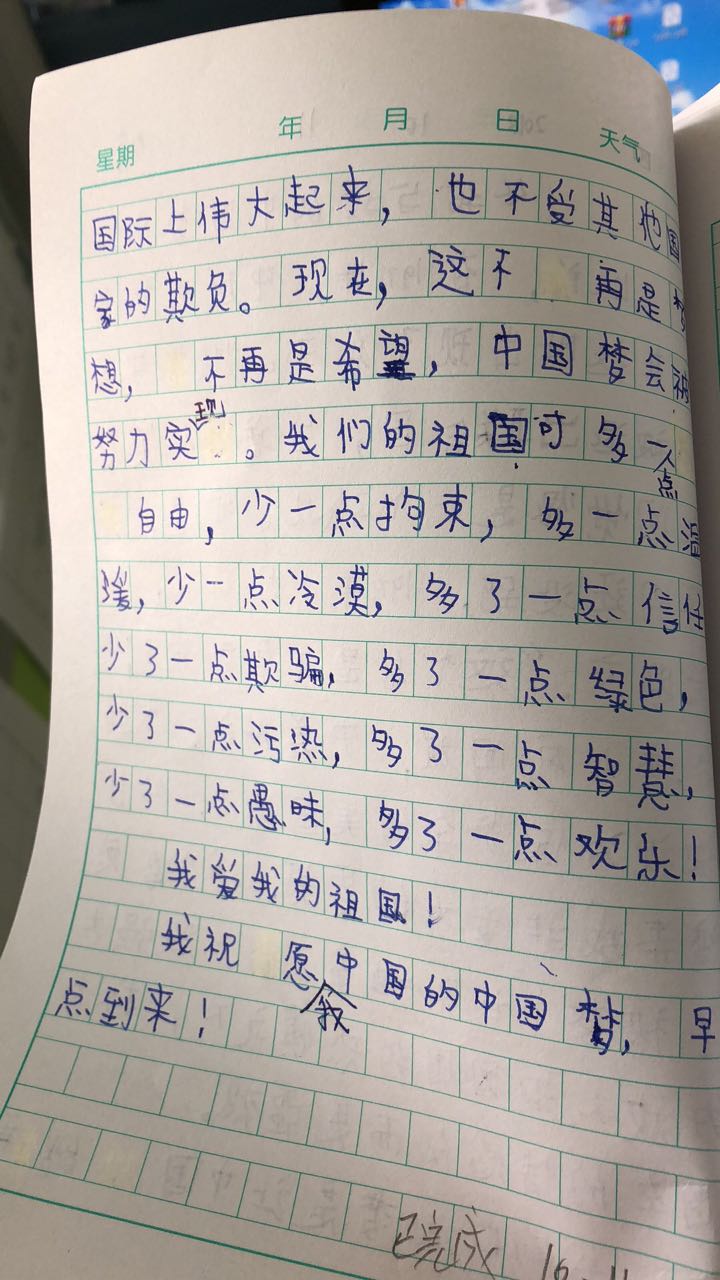 年 月 日
星期 天气
国际上伟大起来，也不受其他国
家的欺负。现在，这不再是梦
想，不再是希望，中国梦会被
努力实现。我们的祖国可多一点
自由，少一点拘束，多一点温
暖，少一点冷漠，多了一点信任
少了一点欺骗，多了一点绿色，
少了一点污热，多了一点智慧，
少了一点愚味，多了一点欢乐！
我爱我的祖国！
我祝愿中国的中国梦，早
点到来！
已完成